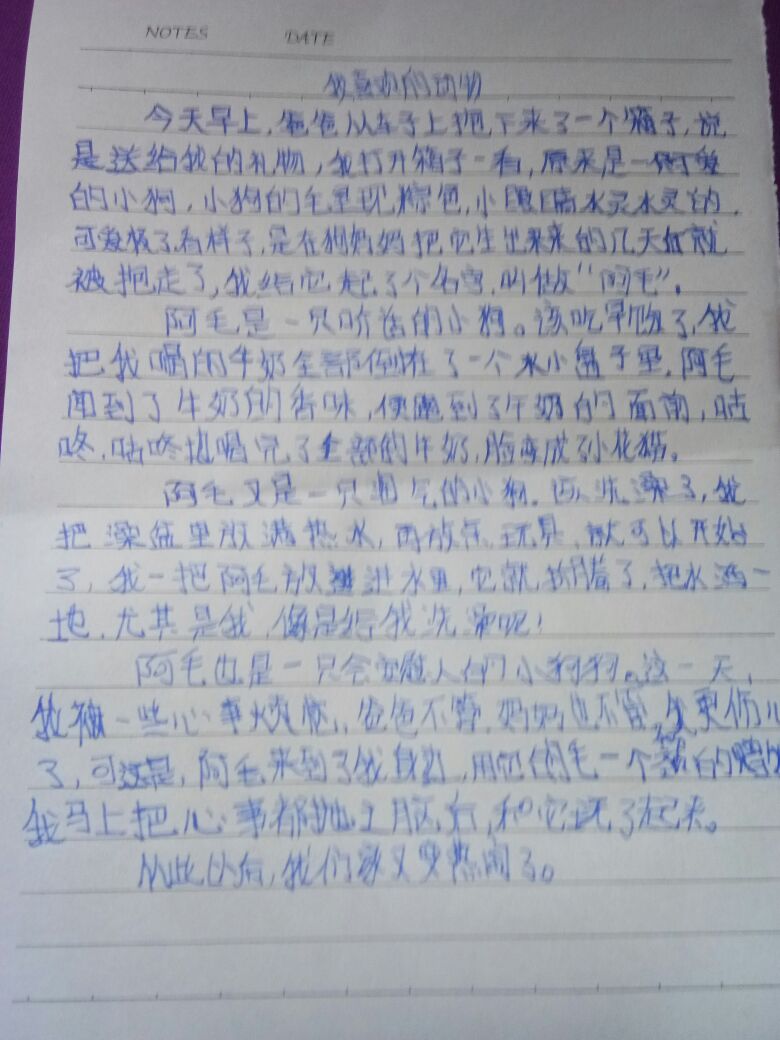 NOTES DATE
我喜欢的动物
今天早上，爸爸从车子上抱下来了一个箱子，说
是送给我的礼物，我打开箱子一看，原来是一只可爱
的小狗，小狗的毛呈现棕色，小眼睛水灵水灵的，
可爱极了，看样子，是在狗妈妈把它生出来的几天后就
被抱走了，我给它起了个名字，叫做“阿毛”。
阿毛是一只贪吃的小狗。该吃早饭了，我
把我喝的牛奶全部倒在了一个小盘子里，阿毛
闻到了牛奶的香味，便跑到了牛奶的面前，咕
咚，咕咚地喝完了全部的牛奶，脸变成了小花猫。
阿毛又是一只淘气的小狗。该洗澡了，我
把澡盆里放满热水，再放玩具，就可以开始
了，我一把阿毛放进水里，它就折腾了，把水洒一
地，尤其是我，像是给我洗澡呢！
阿毛也是一只会安慰人的小狗狗。这一天，
我被一些心事烦恼，爸爸不管，妈妈也不管，我更伤心
了，可这是，阿毛来到了我身边，用它的毛一个的
我马上把心事都抛上脑后，和它玩了起来。
从此以后，我们家又变热闹了。